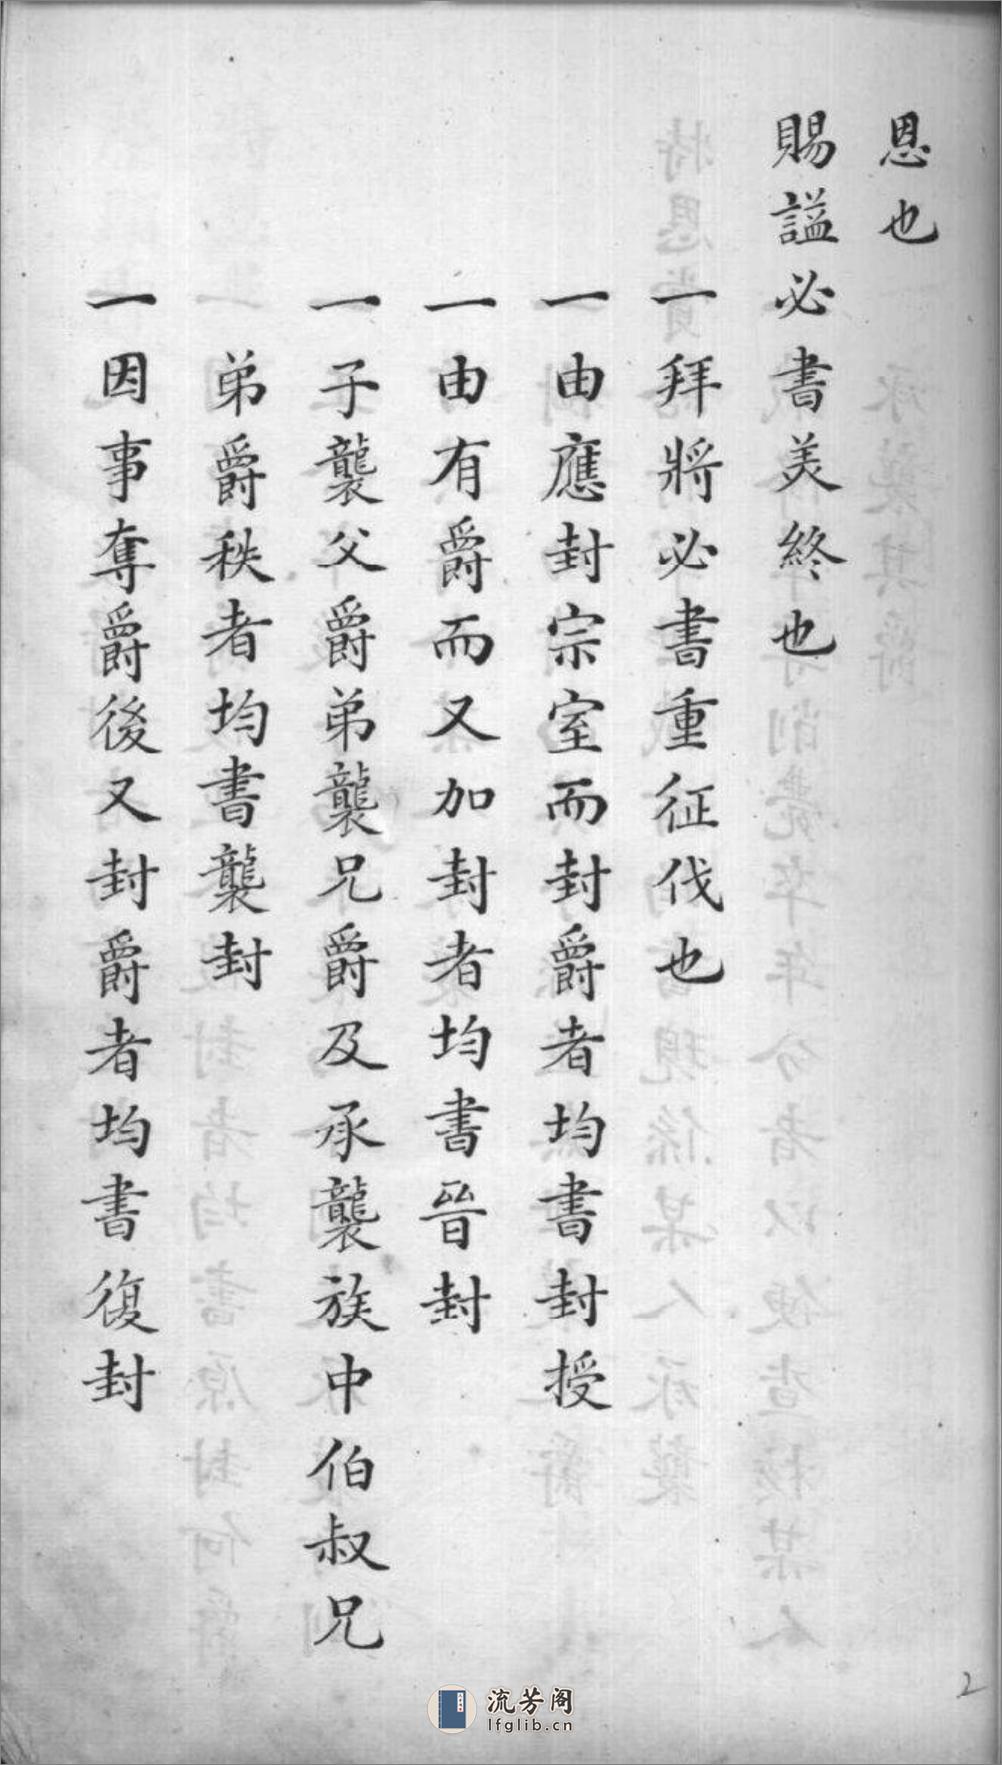 恩也
賜謚必書美終也
一拜將必書重征伐也
一由應封宗室而封爵者均書封授
一由有爵而又加封者均書晉封
一子襲父爵弟襲兄爵及承襲族中伯叔兄
弟爵秩者均書襲封
一因事奪爵後又封爵者均書復封
2
流芳阁
lfglib.cn